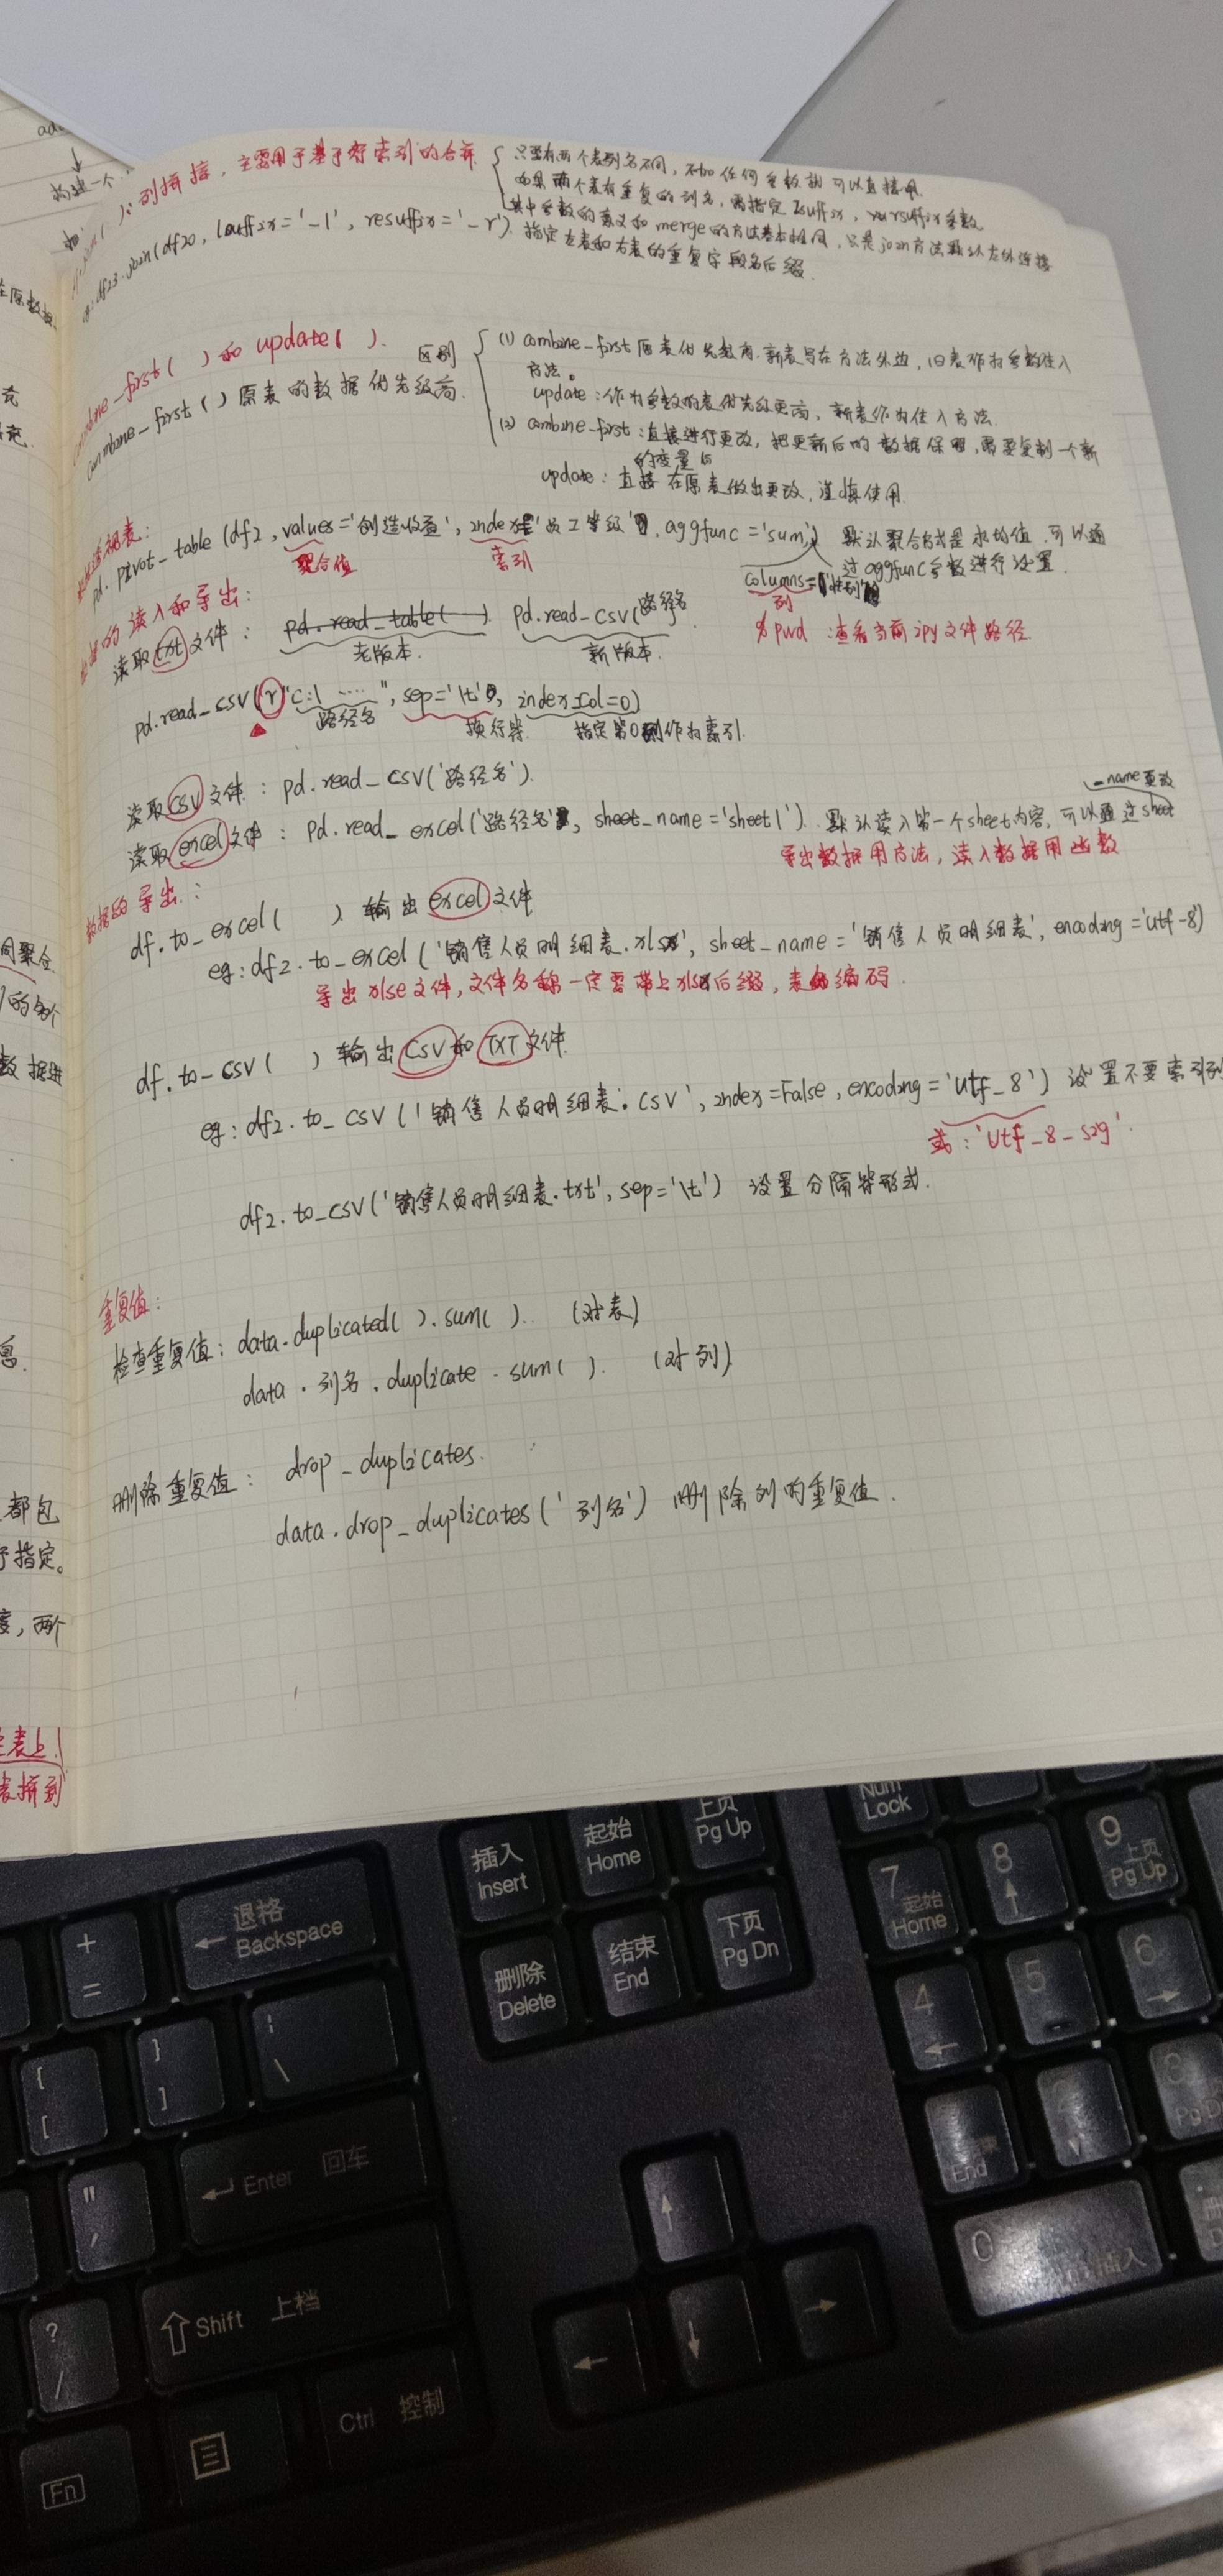 列拼接，主要用于基于行索引的合并
只要有两个表列名不同，不加任何参数就可以直接用
如果两个表有重复的列名，需指定 lsuffix, rsuffix参数
其中参数的意义和merge的方法基本相同，只是join方法默认左外连接
eg: df23.join(df20, lsuffix='_l', resuffix='_r'). 指定左表和右表的重复字段名后缀.
combine_first( ) 和 update( ).
combine_first( ) 原表的数据优先级高.
区别
(1) combine_first 原表优先级高. 新表写在方法外边, 旧表作为参数传入
方法。
update：作为参数的表优先级更高，新表作为传入方法.
(2) combine_first：直接进行更改，把更新后的数据保留，需要复制一个新
的变量
update：直接在原表做出更改，谨慎使用
数据透视表：
pd.pivot_table(df2, values='创造收益', index='员工等级', aggfunc='sum', 默认聚合方式是求均值，可以通
过aggfunc参数进行设置.
聚合值 索引 columns='性别'
列
数据的读入和导出：
读取txt文件： pd.read_table( ) pd.read_csv(路径名
老版本. 新版本.
%pwd ：查看当前ipy文件路径
pd.read_csv(r"C:\ ····", sep='\t', index_col=0)
路径名 换行符. 指定第0列作为索引.
读取csv文件：pd.read_csv('路径名').
_name更改
读取excel文件：pd.read_excel('路径名', sheet_name='sheet1'). 默认读入第一个sheet内容，可以通过sheet
导出数据用方法，读入数据用函数
数据的导出：
df.to_excel( ) 输出excel文件
eg: df2.to_excel('销售人员明细表.xlsx', sheet_name='销售人员明细表', encoding='utf-8')
导出xlse文件，文件名称一定要带上xlsx后缀，表 编码.
df.to_csv( ) 输出CSV和TXT文件
eg: df2.to_csv('销售人员明细表.csv', index=False, encoding='utf_8') 设置不要索引列
或：'utf_8_sig'.
df2.to_csv('销售人员明细表.txt', sep='\t') 设置分隔符形式.
重复值：
检查重复值：data.duplicated( ).sum( ). (对表)
data.列名.duplicate.sum( ). (对列)
删除重复值： drop_duplicates.
data.drop_duplicates('列名') 删除列的重复值.
构建一个
在原数据
充
同聚合
的每个
数据进
息.
都包
指定。
度，两个
表上！
表拼到
插入
Insert
起始
Home
上页
Pg Up
Num
Lock
+
=
退格
Backspace
删除
Delete
结束
End
下页
Pg Dn
7
起始
Home
8
9
上页
Pg Up
{
[
}
]
¦
\
4
5
6
"
'
Enter 回车
End
Pg D
?
/
Shift 上档
0
插入
Fn
Ctrl 控制